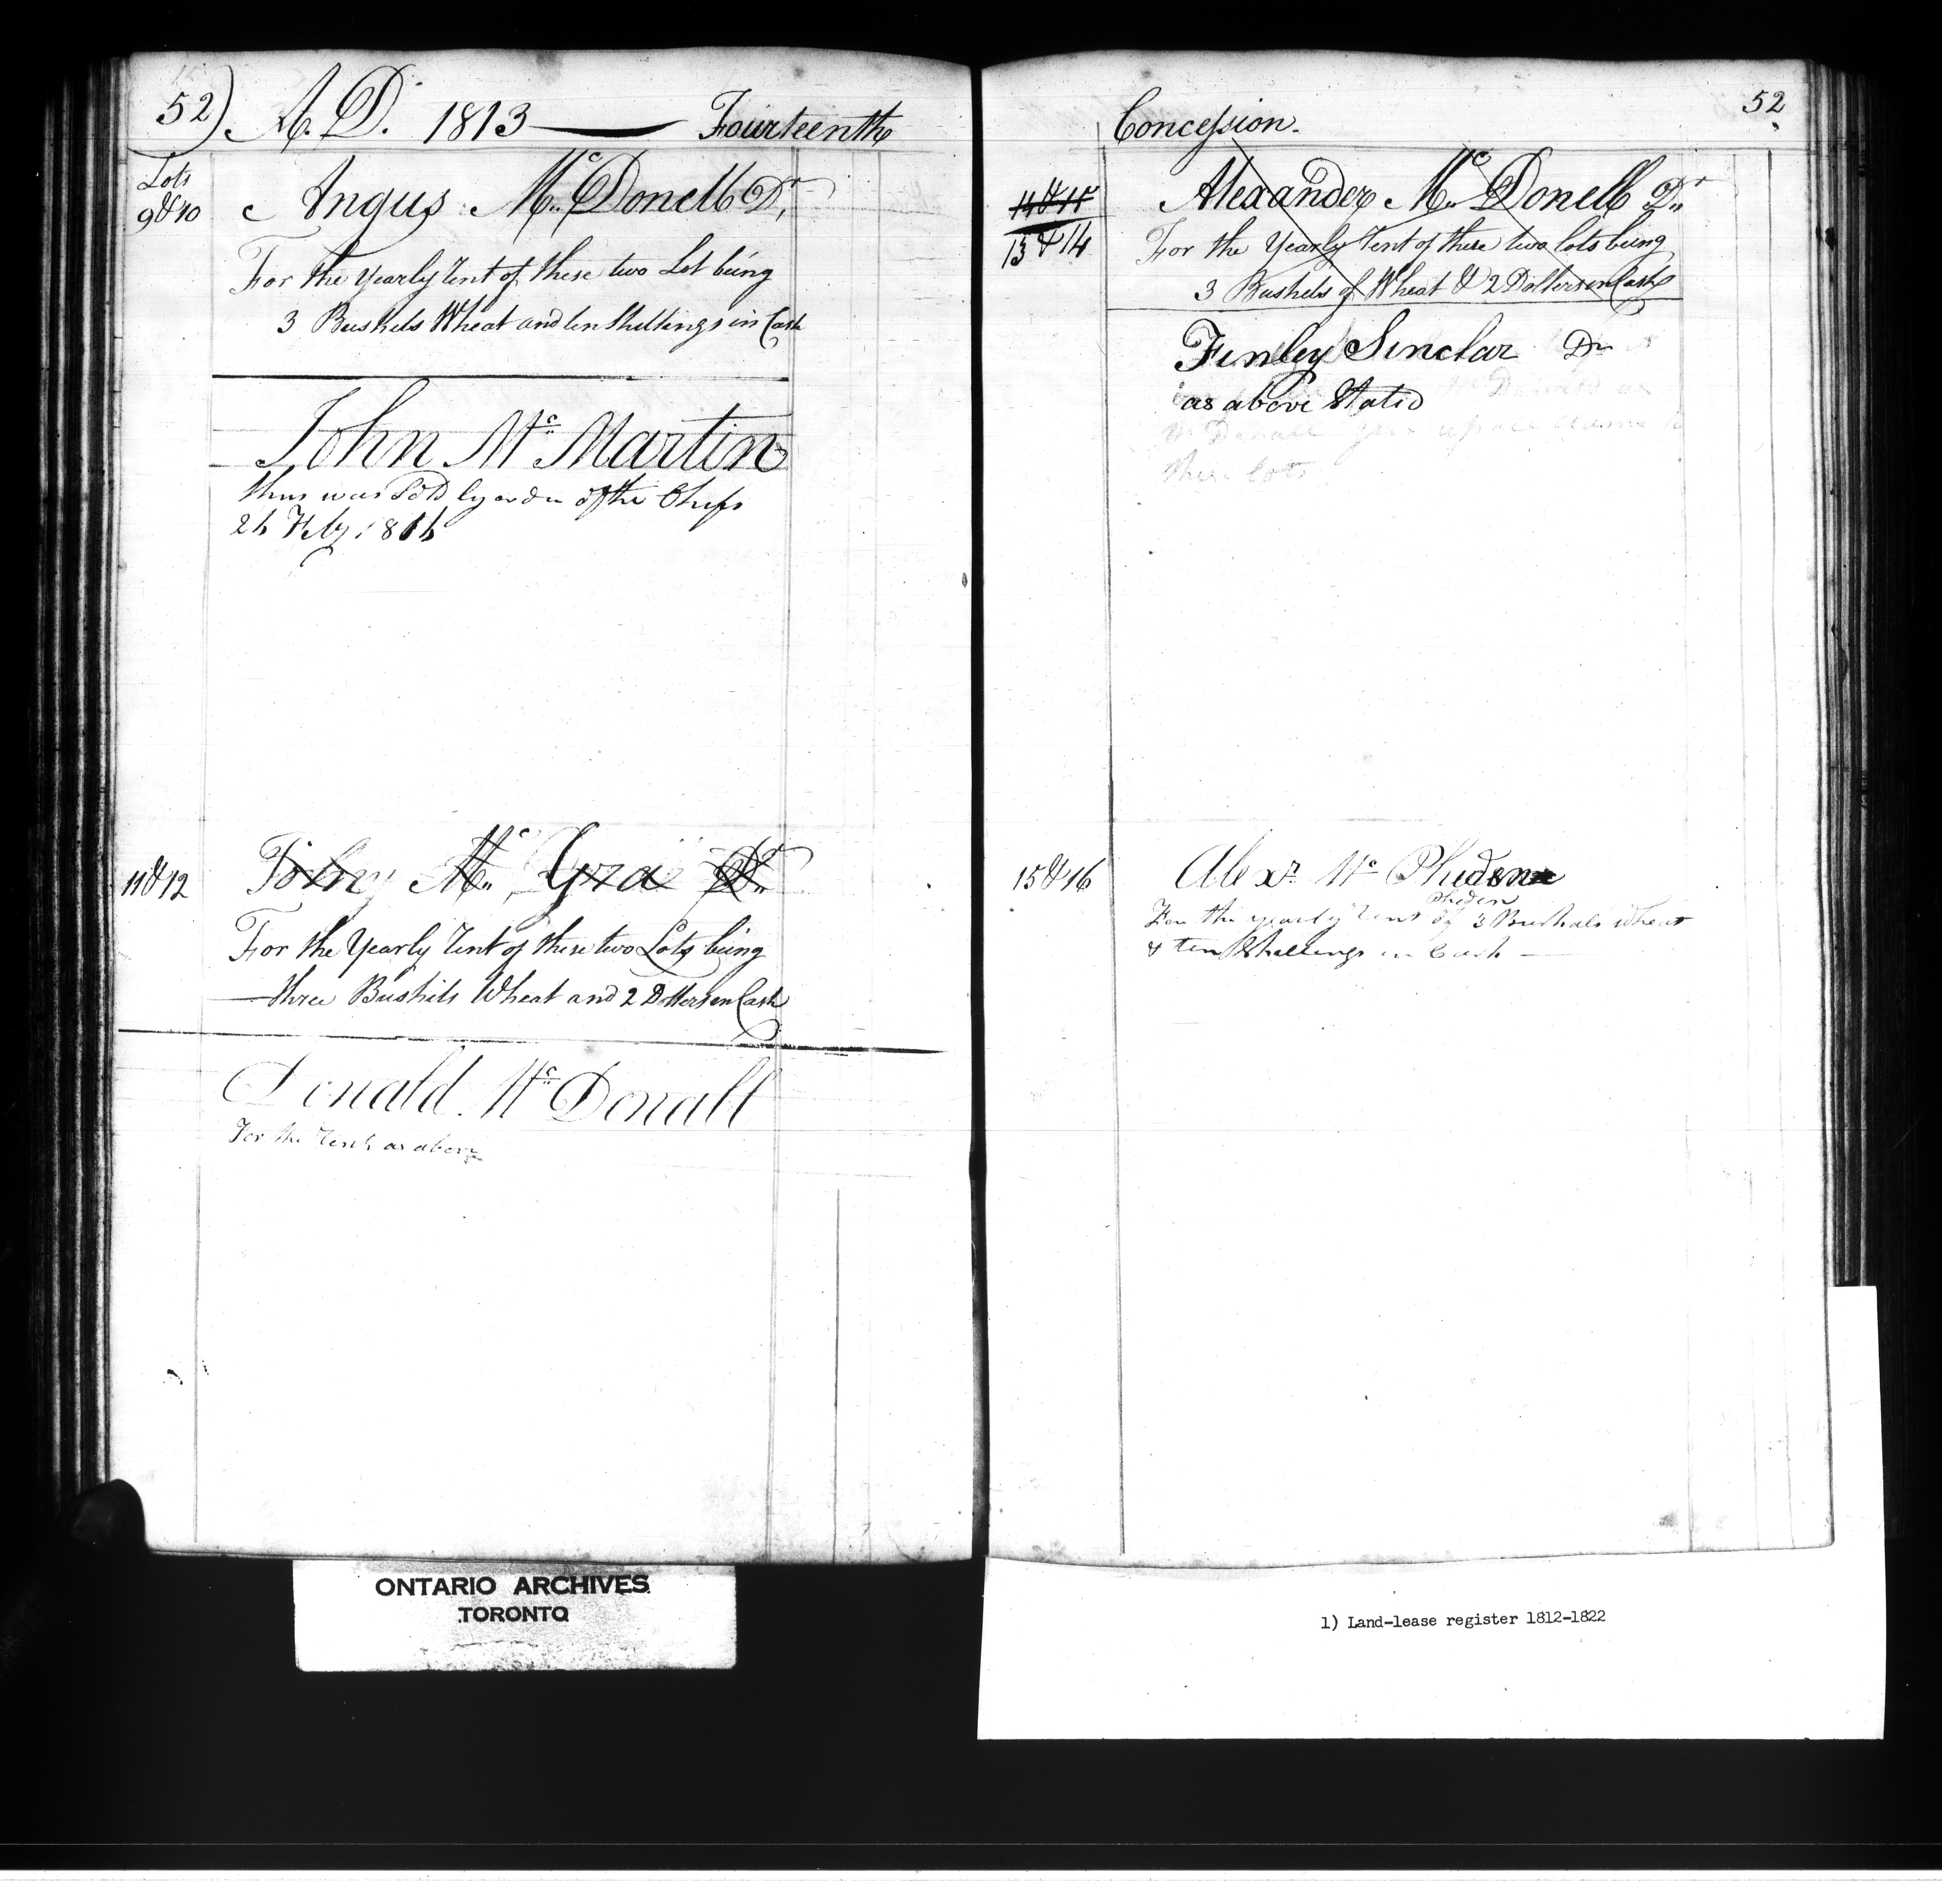 52) A. D. 1813 — Fourteenth
Lots
9 & 10
Angus Mc Donell Dr
For the Yearly Rent of these two Lot being
3 Bushels Wheat and ten Shillings in Cash
John Mc Martin
this was Sold by order of the Chiefs
26 Feby 1816
11 & 12
Mc Gra Dr
For the Yearly Rent of these two Lots being
three Bushels Wheat and 2 Dollers in Cash
Donald Mc Donall
For the Rent as above
Concession.
52
14 & 15
13 & 14
Alexander Mc Donell Dr
For the Yearly Rent of these two lots being
3 Bushels of Wheat & 2 Dollers in Cash
Finley Sinclar Dr
as above Stated
these lots
15 & 16
Alexr Mc Pheden
Pheden
For the yearly Rent of 3 Bushals Wheat
& ten Shallings in Cash —
ONTARIO ARCHIVES
TORONTO
1) Land-lease register 1812-1822